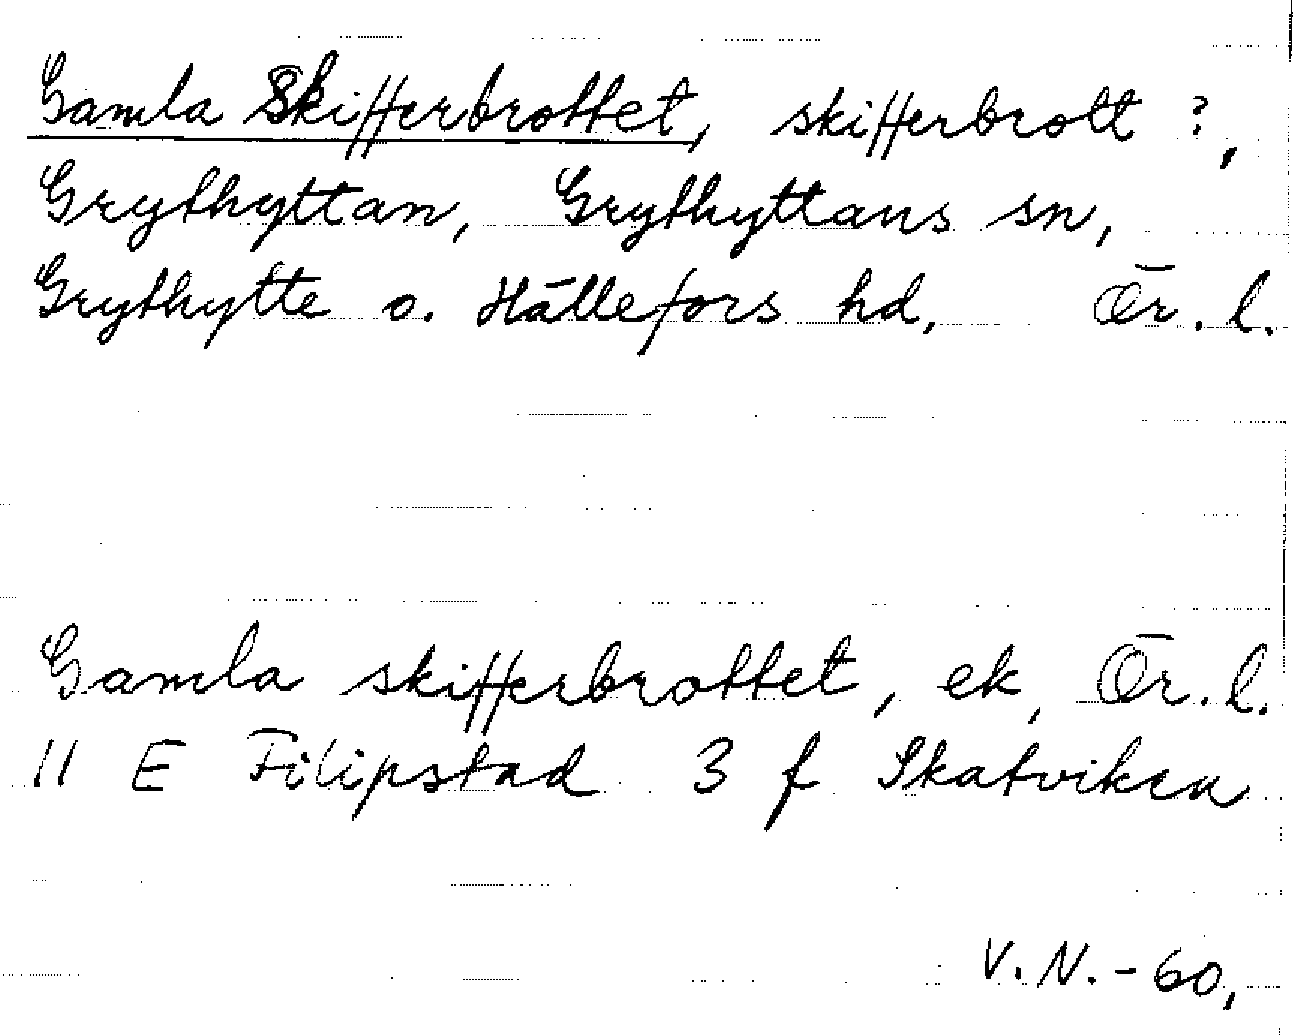 Gamla Skifferbrottet, skifferbrott ?,
Grythyttan, Grythyttans sn,
Grythytte o. Hällefors hd, Ör. l.
Gamla skifferbrottet, ek, Ör. l.
11 E Filipstad 3 f Skatviken
V.N.-60,